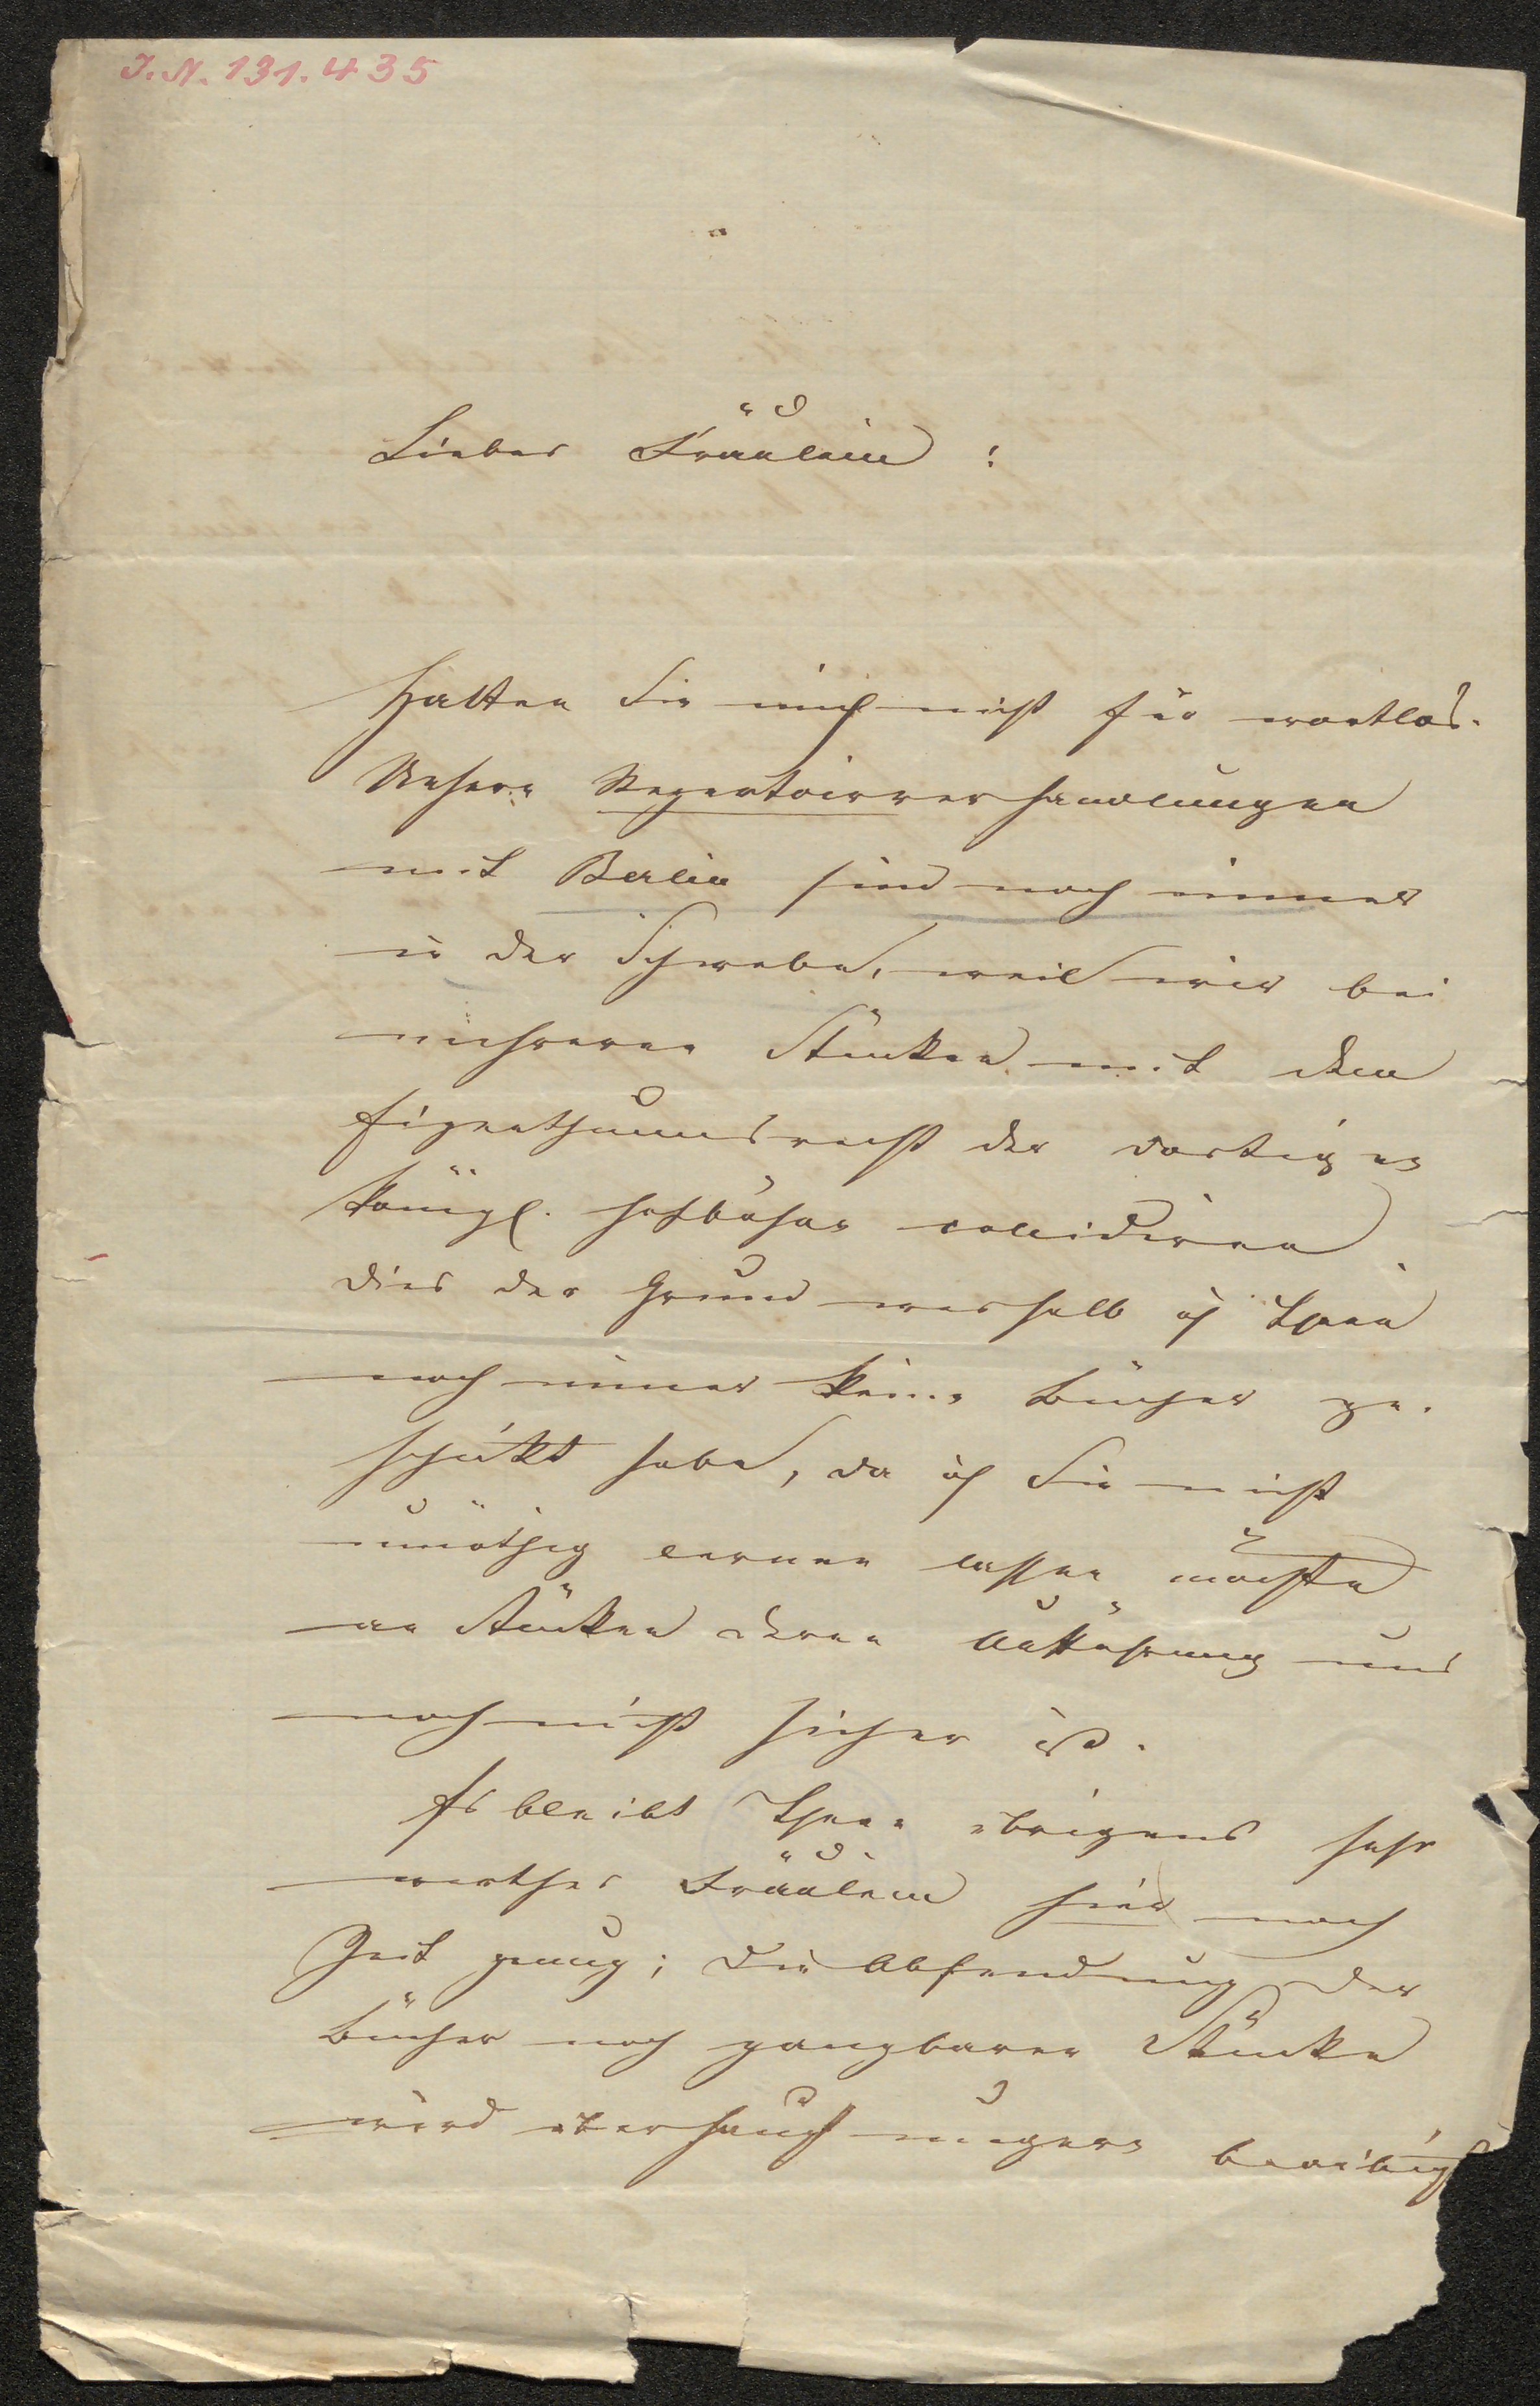 J.N. 131.435
Liebes Fräulein!
Halten Sie mich nicht für wortlos.
Unsere Repertoirverhandlungen
mit Berlin sind noch immer
in der Schwebe, weil wir bei
mehreren Stücken mit dem
Eigenthumsrecht der dortigen
königl. Hofbühne collidiren
dies der Grund weshalb ich Ihnen
noch immer keine Bücher ge-
schickt habe, da ich Sie nicht
unnöthig lernen lassen möchte
an Stücken deren Aufführung uns
noch nicht sicher ist.
Es bleibt Ihnen übrigens sehr
werthes Fräulein hier noch
Zeit genug; die Absendung der
Bücher noch gangbarer Stücke
wird überhaupt ungern